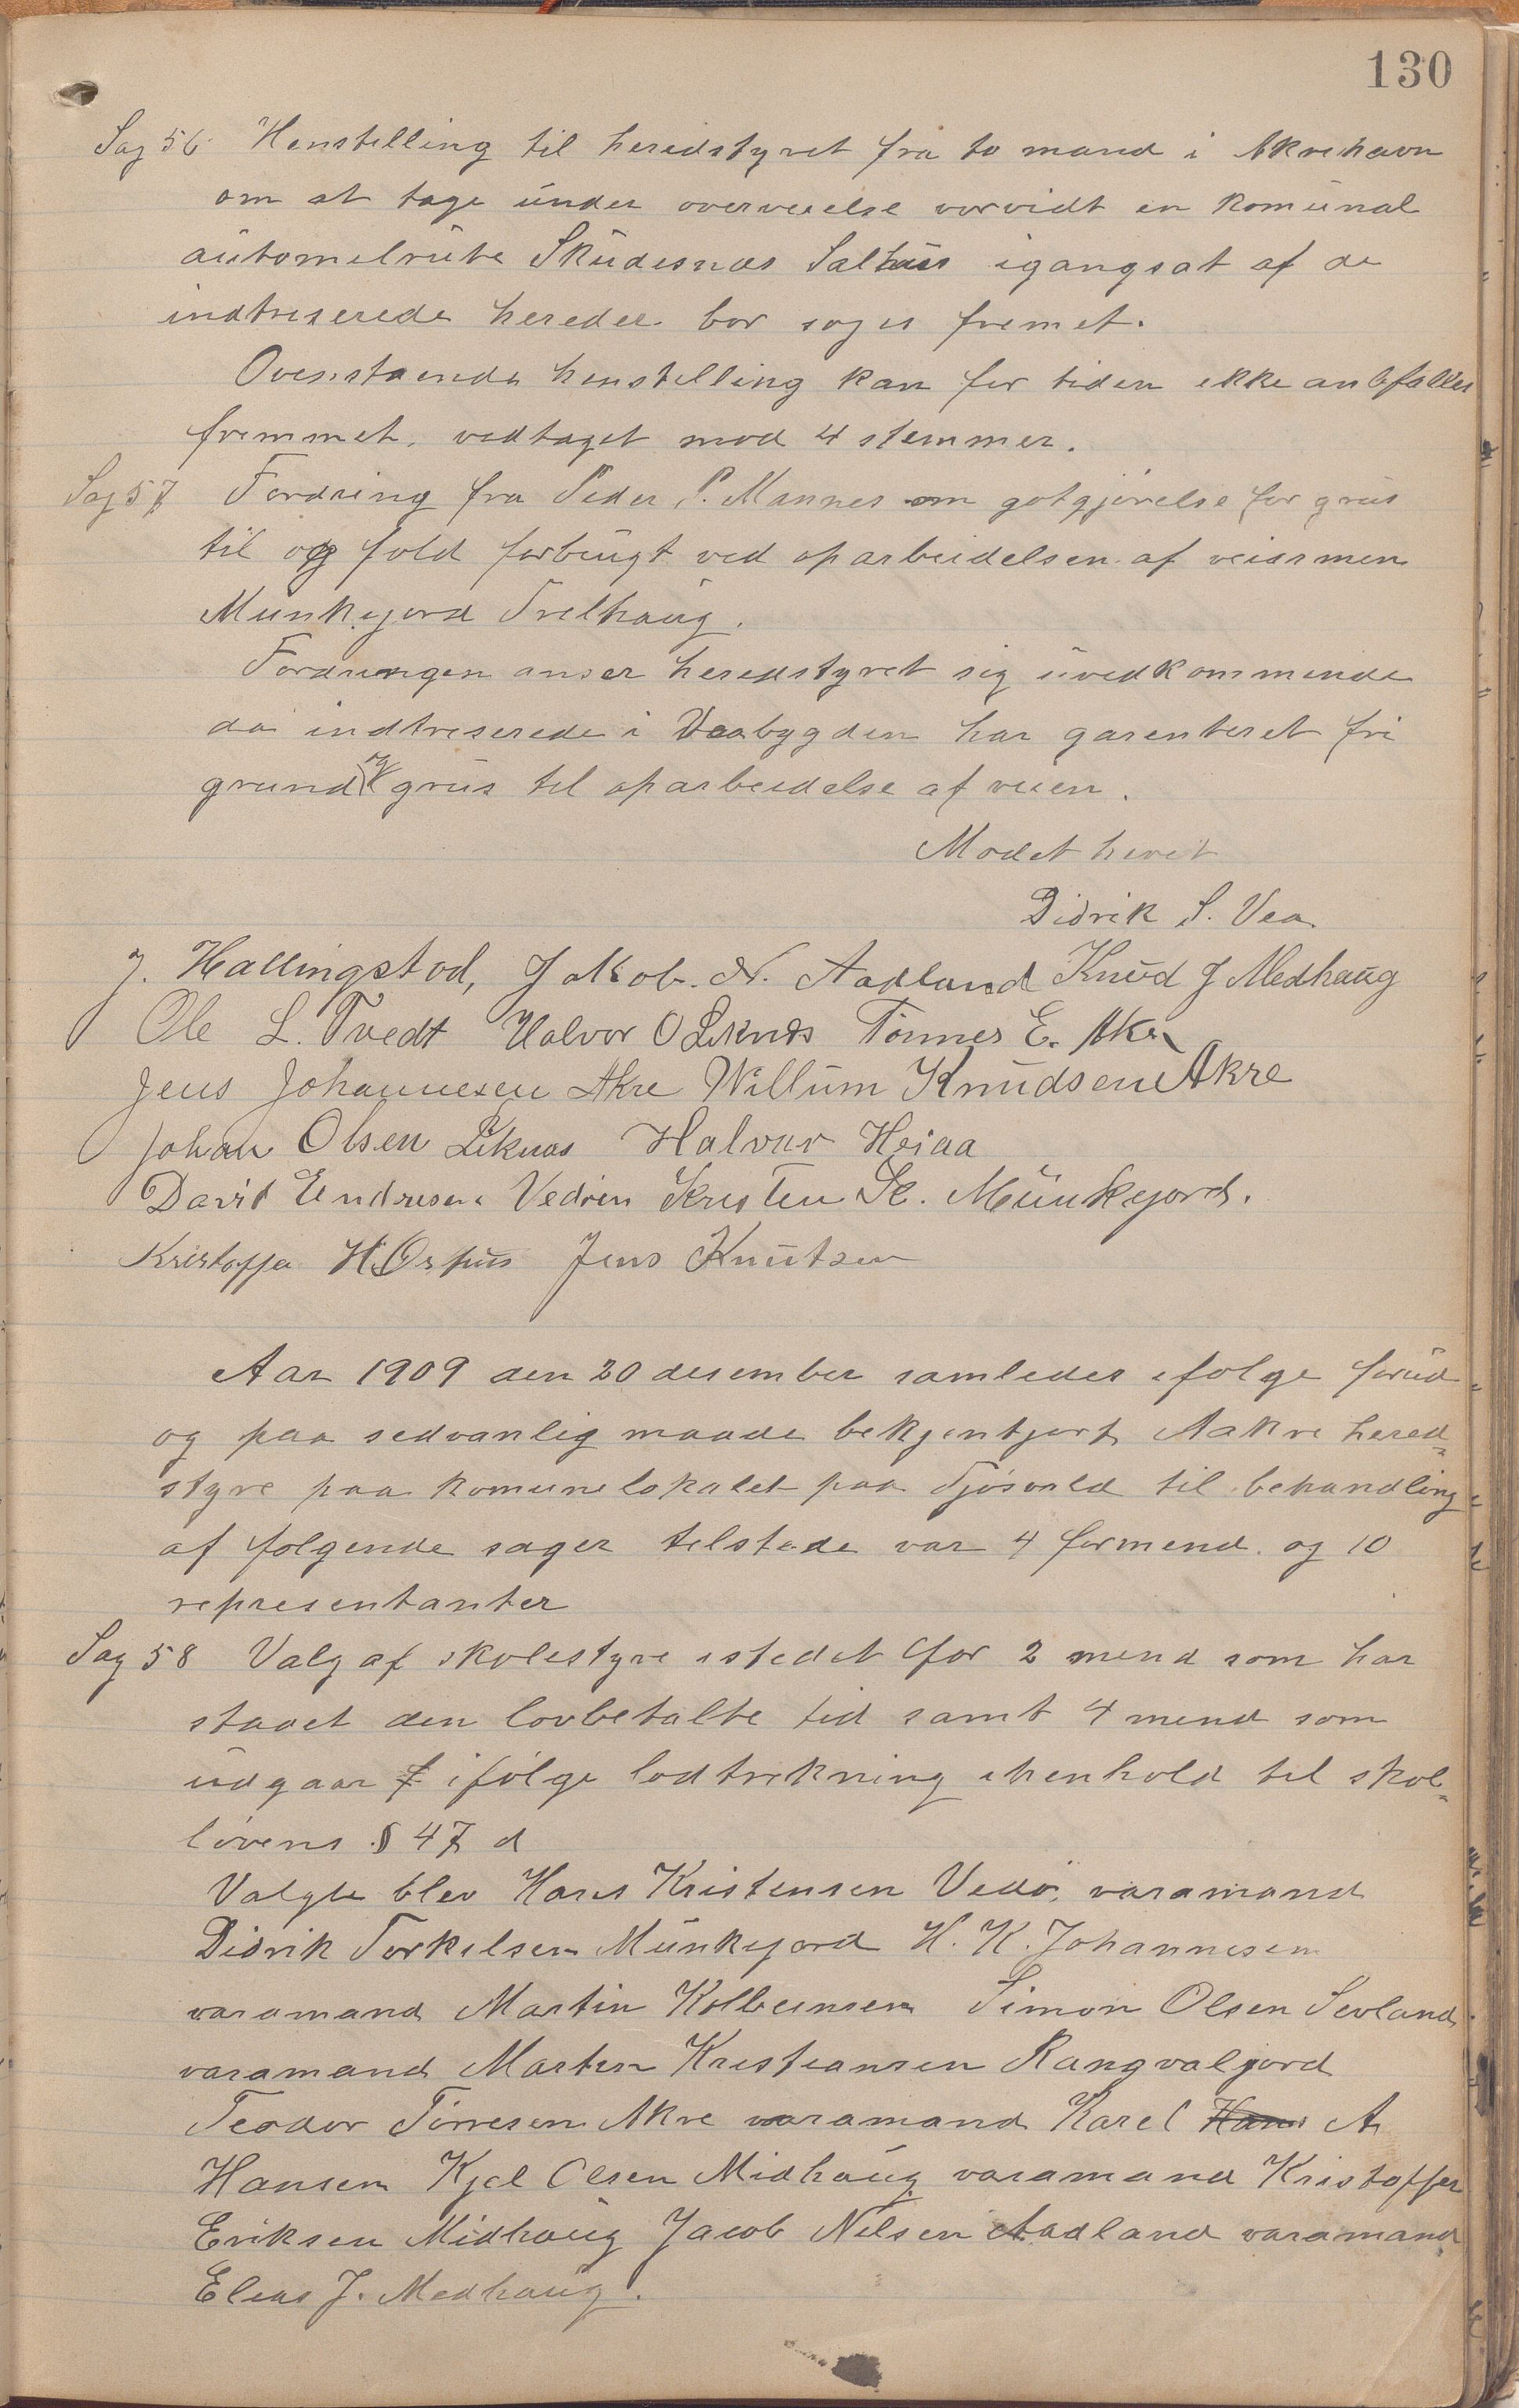 130
Sag 56 Henstilling til heredstyret fra to mand i Akrehavn
om at tage under overveielse vorvidt en komunal
automelrute Skudesnæs Salhus igangsat af de
indtreserede hereder bør søges fremet.
Overstaende henstilling kan for tiden ikke anbefalles
fremmet. vedtaget mod 4 stemmer.
Sag 57 Fordring fra Peder P. Mannes om gotgjörelse for grus
til og fold forbrugt ved oparbeidelsen af veiarmen
Munkejord Trelhaug.
Fordringen anser heredstyret sig uvedkommende
da indtreserede i Veabygden har garenteret fri
grund og grus til oparbeidelse af veien.
Modet hevet
Didrik S. Vea
J. Hallingstod, Jakob. N. Aadland Knud J Medhaug
Ole L. Tvedt Halvor O Liknes Tönnes E. Akre
Jens Johannesen Akre Willum Knudsen Akre
Johan Olsen Liknes Halvar Heiaa
David Endresen Vedöen Kristen Sk. Munkejord.
Kristoffer H. Ospus Jens Knutsen
Aar 1909 den 20 desember samledes efolge forud
og paa sedvanlig maade bekjentjort Aakre hered-
styre paa komunelokalet paa Tjösvold til behandling
af følgende sager telstede var 4 formend og 10
representanter
Sag 58 Valg af skolestyre istedet for 2 mend som har
staaet den lovbetalte tid samt 4 mend som
udgaar f ifölge lodtrekning ehenhold til skol-
lovens § 47 d
Valgte blev Hans Kristensen Vedö, varamand
Didrik Torkelsen Munkejord H. K. Johannesen
varamand Martin Kolbeinsen Simon Olsen Sevland
varamand Marten Kristiansen Rangvaljord
Teodor Törresen Akre varamand Karel Hans A
Hansen Kjel Olsen Midhaug varamand Kristoffer
Eriksen Midhaug Jacob Nilsen Aadland varamand
Elias J. Medhaug.